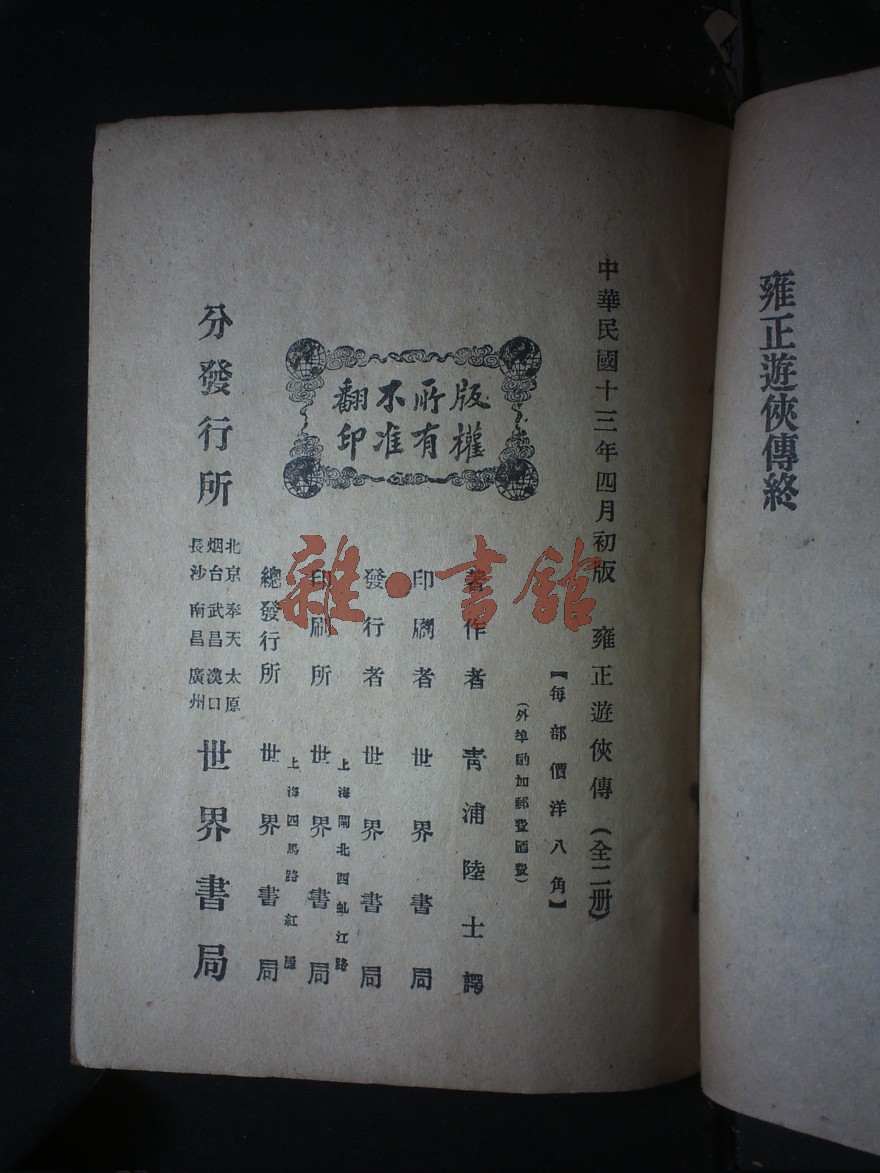 雍正遊俠傳終
中華民國十三年四月初版　雍正遊俠傳（全二册）
【每部價洋八角】
（外埠酌加郵費匯費）
版權
所有
不准
翻印
著作者　青浦陸士諤
印刷者　世界書局
發行者　世界書局
上海閘北西虬江路
印刷所　世界書局
上海四馬路紅屋
總發行所　世界書局
分發行所
北京　奉天　太原
烟台　武昌　漢口
長沙　南昌　廣州
世界書局
雜·書館